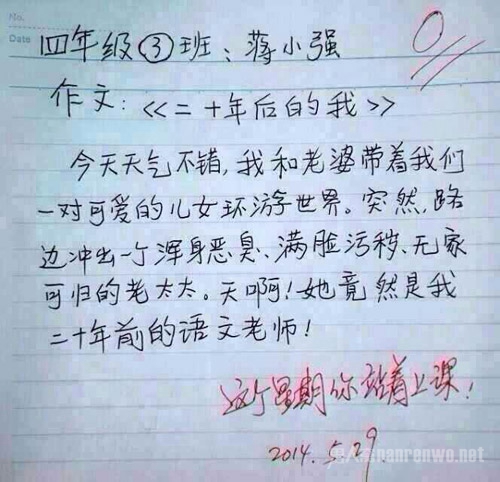 No.
Date
四年级③班:蒋小强
0
作文:《二十年后的我》
今天天气不错,我和老婆带着我们
一对可爱的儿女环游世界。突然,路
边冲出一个浑身恶臭、满脸污秽、无家
可归的老太太。天啊!她竟然是我
二十年前的语文老师!
这个星期你站着上课!
2014.5.29